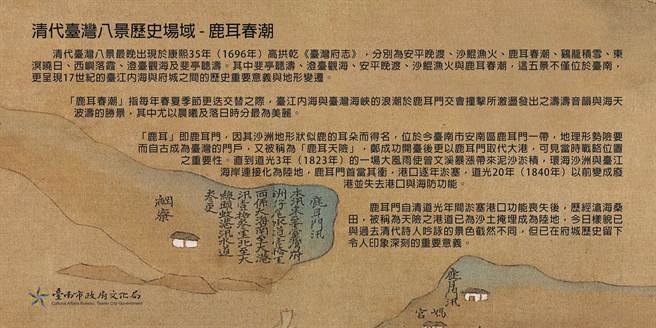 清代臺灣八景歷史場域 - 鹿耳春潮
清代臺灣八景最晚出現於康熙35年（1696年）高拱乾《臺灣府志》，分別為安平晚渡、沙鯤漁火、鹿耳春潮、雞籠積雪、東
溟曉日、西嶼落霞、澄臺觀海及斐亭聽濤。其中斐亭聽濤、澄臺觀海、安平晚渡、沙鯤漁火與鹿耳春潮，這五景不僅位於臺南，
更呈現17世紀的臺江內海與府城之間的歷史重要意義與地形變遷。
「鹿耳春潮」指每年春夏季節更迭交替之際，臺江內海與臺灣海峽的浪潮於鹿耳門交會撞擊所激盪發出之濤濤音韻與海天
波濤的勝景，其中尤以晨曦及落日時分最為美麗。
「鹿耳」即鹿耳門，因其沙洲地形狀似鹿的耳朵而得名，位於今臺南市安南區鹿耳門一帶，地理形勢險要
而自古成為臺灣的門戶，又被稱為「鹿耳天險」，鄭成功開臺後更以鹿耳門取代大港，可見當時戰略位置
之重要性。直到道光3年（1823年）的一場大風雨使曾文溪暴漲帶來泥沙淤積，環海沙洲與臺江
海岸連接化為陸地，鹿耳門首當其衝，港口逐年淤塞，道光20年（1840年）以前變成廢
港並失去港口與海防功能。
鹿耳門自清道光年間淤塞港口功能喪失後，歷經滄海桑
田，被稱為天險之港道已為沙土掩埋成為陸地，今日樣貌已
與過去清代詩人吟詠的景色截然不同，但已在府城歷史留下
令人印象深刻的重要意義。
鹿耳門汛
網寮
鹿耳門汛
媽宮
臺南市政府文化局
Cultural Affairs Bureau, Tainan City Government